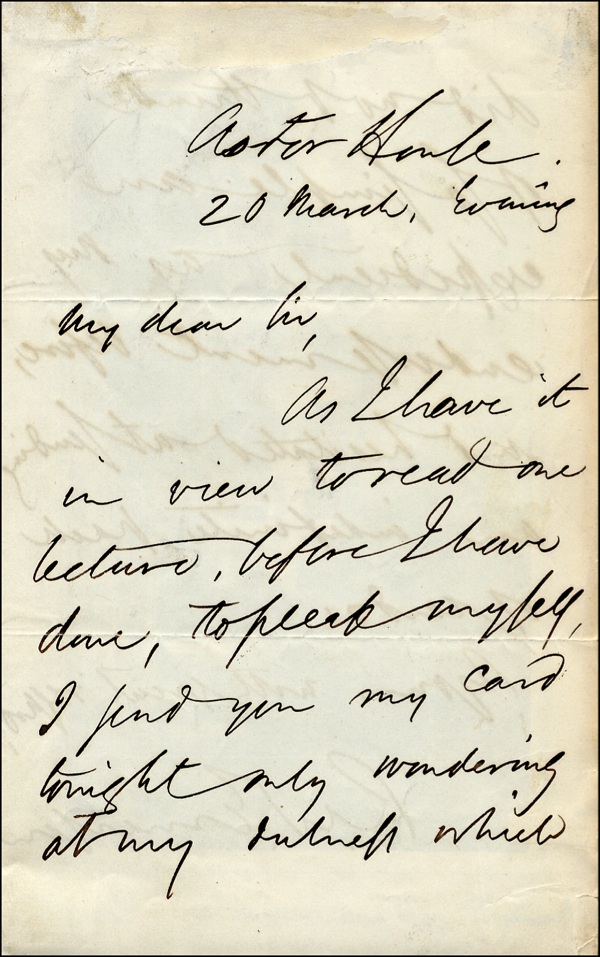 Astor House.
20 March, Evening
My dear Sir,
As I have it
in view to read one
lecture, before I have
done, to please myself,
I send you my card
tonight only wondering
at my dulness which